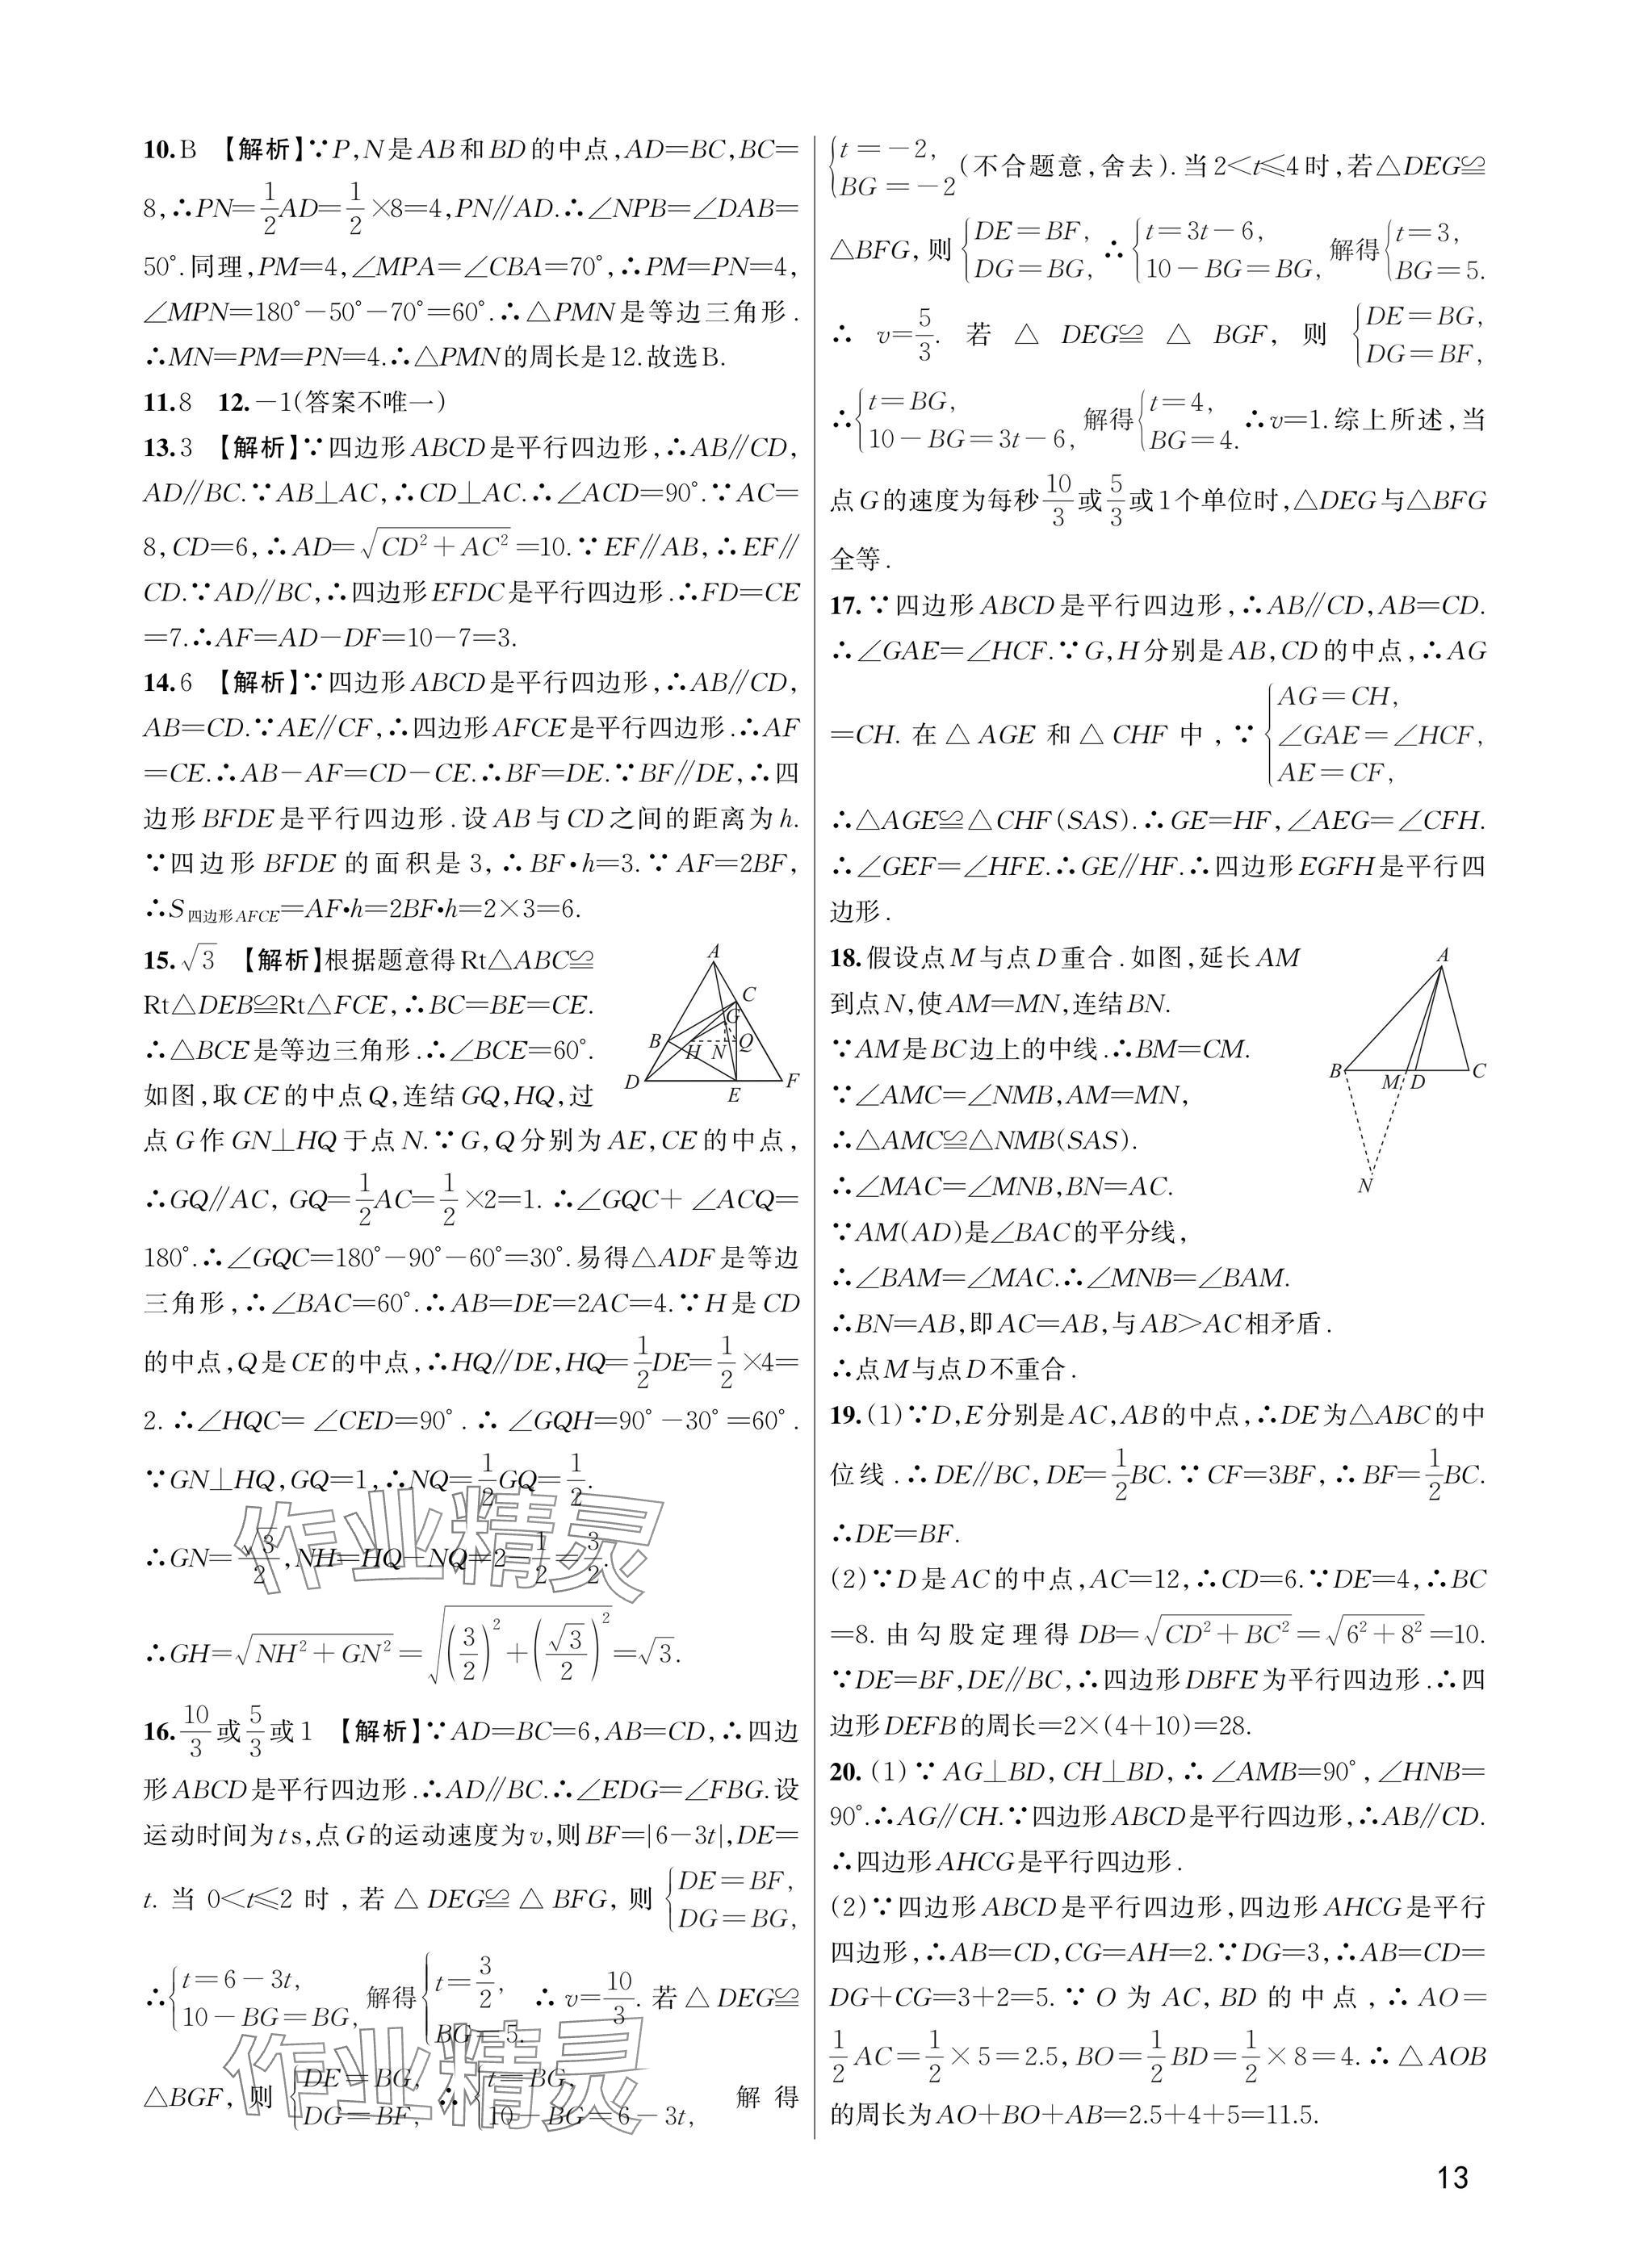 10.B 【解析】∵P,N是AB和BD的中点,AD=BC,BC=
8,∴PN=1/2AD=1/2×8=4,PN∥AD.∴∠NPB=∠DAB=
50°.同理,PM=4,∠MPA=∠CBA=70°,∴PM=PN=4,
∠MPN=180°-50°-70°=60°.∴△PMN是等边三角形.
∴MN=PM=PN=4.∴△PMN的周长是12.故选B.
11.8 12.-1(答案不唯一)
13.3 【解析】∵四边形ABCD是平行四边形,∴AB∥CD,
AD∥BC.∵AB⊥AC,∴CD⊥AC.∴∠ACD=90°.∵AC=
8,CD=6,∴AD=√(CD²+AC²)=10.∵EF∥AB,∴EF∥
CD.∵AD∥BC,∴四边形EFDC是平行四边形.∴FD=CE
=7.∴AF=AD-DF=10-7=3.
14.6 【解析】∵四边形ABCD是平行四边形,∴AB∥CD,
AB=CD.∵AE∥CF,∴四边形AFCE是平行四边形.∴AF
=CE.∴AB-AF=CD-CE.∴BF=DE.∵BF∥DE,∴四
边形BFDE是平行四边形.设AB与CD之间的距离为h.
∵四边形BFDE的面积是3,∴BF·h=3.∵AF=2BF,
∴S四边形AFCE=AF·h=2BF·h=2×3=6.
15.√3 【解析】根据题意得Rt△ABC≌
Rt△DEB≌Rt△FCE,∴BC=BE=CE.
∴△BCE是等边三角形.∴∠BCE=60°.
如图,取CE的中点Q,连结GQ,HQ,过
A
C
G
B
H N Q
D
E
F
点G作GN⊥HQ于点N.∵G,Q分别为AE,CE的中点,
∴GQ∥AC,GQ=1/2AC=1/2×2=1.∴∠GQC+∠ACQ=
180°.∴∠GQC=180°-90°-60°=30°.易得△ADF是等边
三角形,∴∠BAC=60°.∴AB=DE=2AC=4.∵H是CD
的中点,Q是CE的中点,∴HQ∥DE,HQ=1/2DE=1/2×4=
2.∴∠HQC=∠CED=90°.∴∠GQH=90°-30°=60°.
∵GN⊥HQ,GQ=1,∴NQ=1/2GQ=1/2.
∴GN=√3/2,NH=HQ-NQ=2-1/2=3/2.
∴GH=√(NH²+GN²)=√((3/2)²+(√3/2)²)=√3.
16.10/3或5/3或1 【解析】∵AD=BC=6,AB=CD,∴四边
形ABCD是平行四边形.∴AD∥BC.∴∠EDG=∠FBG.设
运动时间为t s,点G的运动速度为v,则BF=|6-3t|,DE=
t.当0<t≤2时,若△DEG≌△BFG,则{DE=BF, DG=BG,
∴{t=6-3t, 10-BG=BG, 解得{t=3/2, BG=5. ∴v=10/3.若△DEG≌
△BGF,则{DE=BG, DG=BF, ∴{t=BG, 10-BG=6-3t, 解得
{t=-2, BG=-2(不合题意,舍去).当2<t≤4时,若△DEG≌
△BFG,则{DE=BF, DG=BG, ∴{t=3t-6, 10-BG=BG, 解得{t=3, BG=5.
∴v=5/3.若△DEG≌△BGF,则{DE=BG, DG=BF,
∴{t=BG, 10-BG=3t-6, 解得{t=4, BG=4. ∴v=1.综上所述,当
点G的速度为每秒10/3或5/3或1个单位时,△DEG与△BFG
全等.
17.∵四边形ABCD是平行四边形,∴AB∥CD,AB=CD.
∴∠GAE=∠HCF.∵G,H分别是AB,CD的中点,∴AG
=CH.在△AGE和△CHF中,∵{AG=CH, ∠GAE=∠HCF, AE=CF,
∴△AGE≌△CHF(SAS).∴GE=HF,∠AEG=∠CFH.
∴∠GEF=∠HFE.∴GE∥HF.∴四边形EGFH是平行四
边形.
18.假设点M与点D重合.如图,延长AM
到点N,使AM=MN,连结BN.
∵AM是BC边上的中线.∴BM=CM.
∵∠AMC=∠NMB,AM=MN,
∴△AMC≌△NMB(SAS).
∴∠MAC=∠MNB,BN=AC.
A
B
M D
C
N
∵AM(AD)是∠BAC的平分线,
∴∠BAM=∠MAC.∴∠MNB=∠BAM.
∴BN=AB,即AC=AB,与AB>AC相矛盾.
∴点M与点D不重合.
19.(1)∵D,E分别是AC,AB的中点,∴DE为△ABC的中
位线.∴DE∥BC,DE=1/2BC.∵CF=3BF,∴BF=1/2BC.
∴DE=BF.
(2)∵D是AC的中点,AC=12,∴CD=6.∵DE=4,∴BC
=8.由勾股定理得DB=√(CD²+BC²)=√(6²+8²)=10.
∵DE=BF,DE∥BC,∴四边形DBFE为平行四边形.∴四
边形DEFB的周长=2×(4+10)=28.
20.(1)∵AG⊥BD,CH⊥BD,∴∠AMB=90°,∠HNB=
90°.∴AG∥CH.∵四边形ABCD是平行四边形,∴AB∥CD.
∴四边形AHCG是平行四边形.
(2)∵四边形ABCD是平行四边形,四边形AHCG是平行
四边形,∴AB=CD,CG=AH=2.∵DG=3,∴AB=CD=
DG+CG=3+2=5.∵O为AC,BD的中点,∴AO=
1/2AC=1/2×5=2.5,BO=1/2BD=1/2×8=4.∴△AOB
的周长为AO+BO+AB=2.5+4+5=11.5.
作业精灵
作业精灵
13